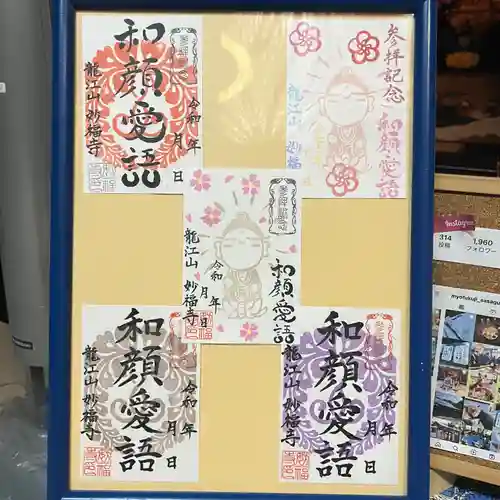 和顔愛語
龍江山 妙福寺
令和 年 月 日
参拝記念
和顔愛語
龍江山 妙福
和顔愛語
龍江山 妙福寺
令和 年 月 日
和顔愛語
龍江山 妙福寺
令和 年 月 日
和顔愛語
龍江山 妙福寺
令和 年 月 日
Instagram
314 1,960
投稿 フォロワー